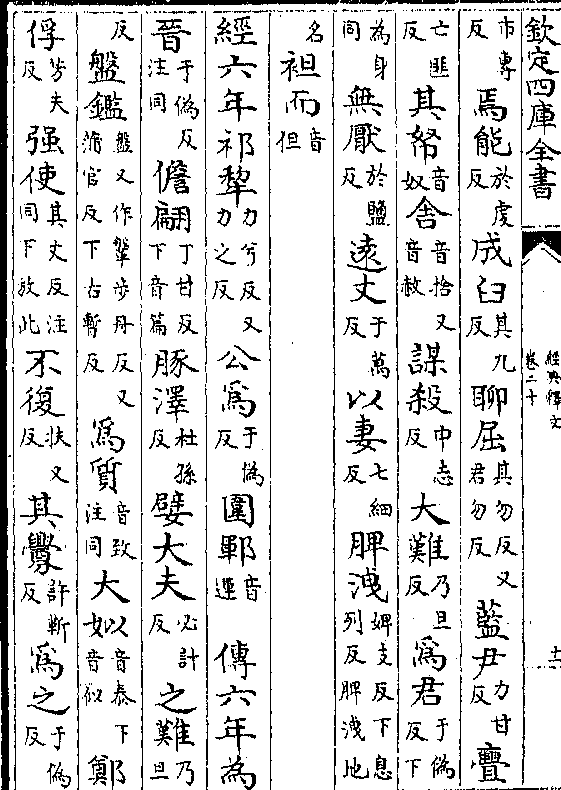 欽定四庫全書
經典釋文
卷二十
十一
市專反 焉能於虔反 成臼其九反 聊屈其勿反又君勿反 藍尹力甘反 亹
亡匪反 其帑音奴 舍音捨又音赦 謀殺申志反 大難乃旦反 為君于偽反下
為身同 無厭於鹽反 遠丈于萬反 以妻七細反 脾洩婢支反下息列反脾洩地
名 袒而音但
經六年祁犂力兮反又力之反 公爲于偽反 圍鄆音運 傳六年為
晉于偽反注同 儋翩丁甘反下音篇 豚澤杜孫反 嬖大夫必計反 之難乃旦
反 盤鑑盤又作鞶步丹反又蒲官反下古暫反 爲質音致注同 大姒音泰下音似 鄭
俘芳夫反 强使其丈反注同下放此 不復扶又反 其釁許靳反 爲之于偽反